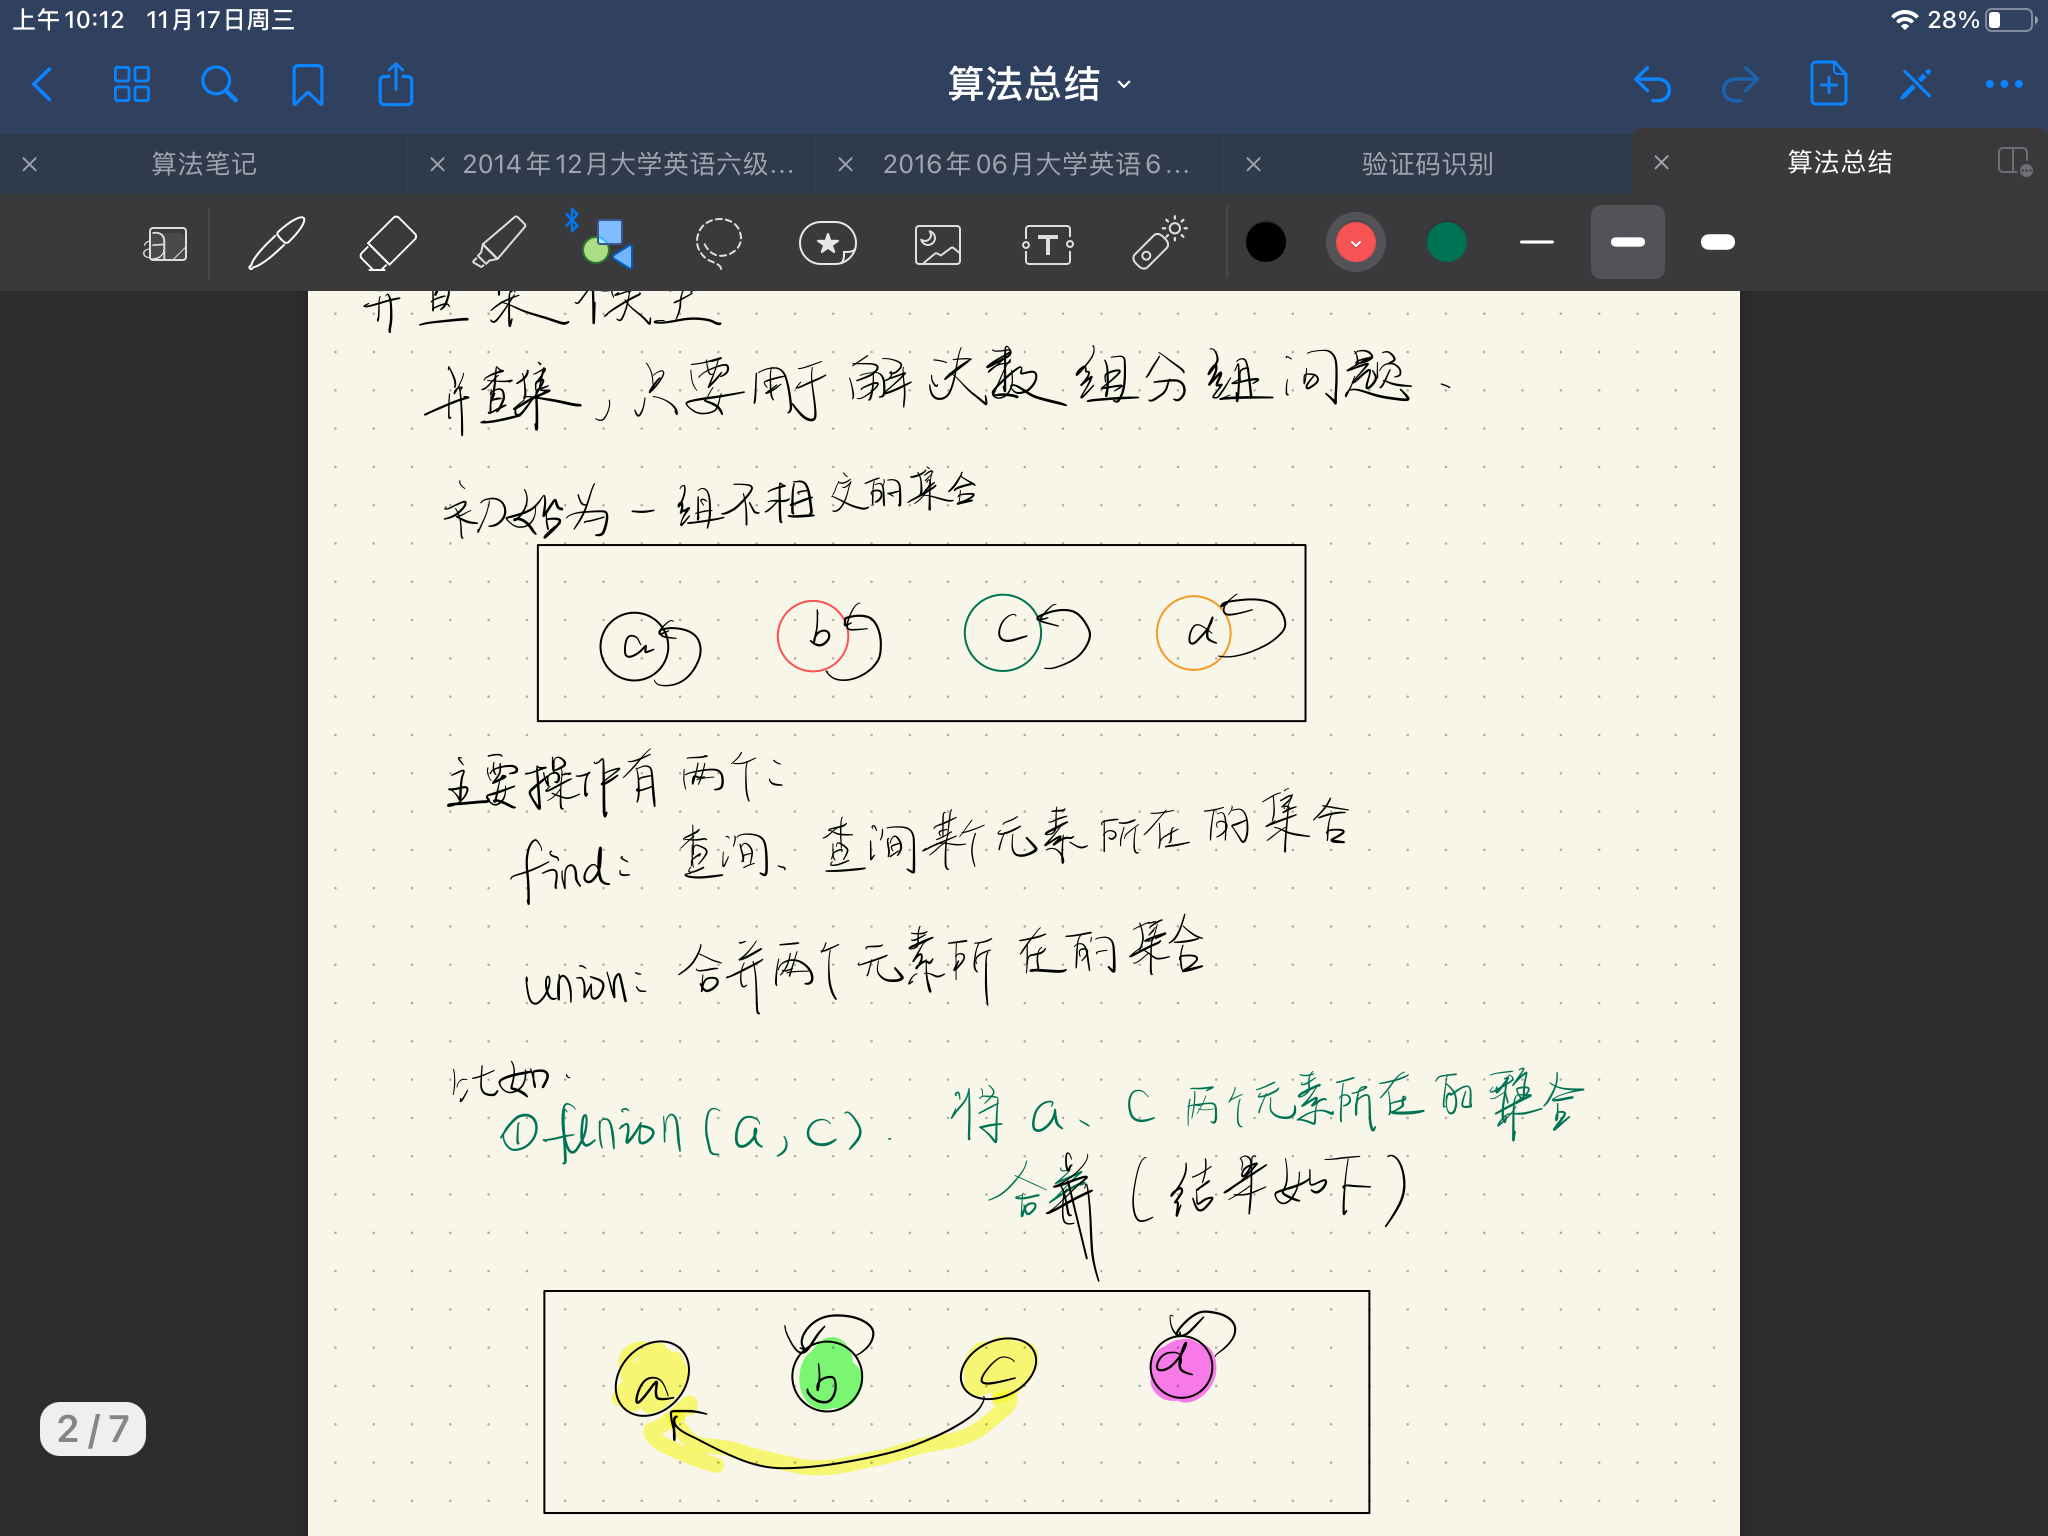 上午10:12 11月17日周三
28%
算法总结
算法笔记
2014年12月大学英语六级...
2016年06月大学英语6...
验证码识别
算法总结
并查集模型
并查集，只要用于解决数组分组问题.
初始为一组不相交的集合
a b c d
主要操作有两个:
find: 查询、查询某个元素所在的集合
union: 合并两个元素所在的集合
比如.
① union(a,c). 将a、c两个元素所在的集合
合并(结果如下)
a b c d
2/7